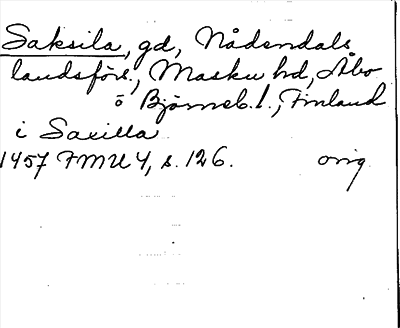 Saksila, gd, Nådendals
landsförs., Masku hd, Åbo
o Björneb. l., Finland
i Saxilla
1457 FMU 4, s. 126. orig.